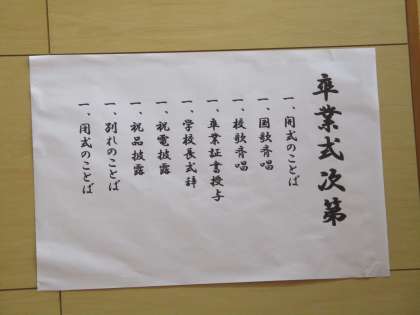 卒業式次第
一、開式のことば
一、国歌斉唱
一、校歌斉唱
一、卒業証書授与
一、学校長式辞
一、祝電披露
一、祝品披露
一、別れのことば
一、閉式のことば